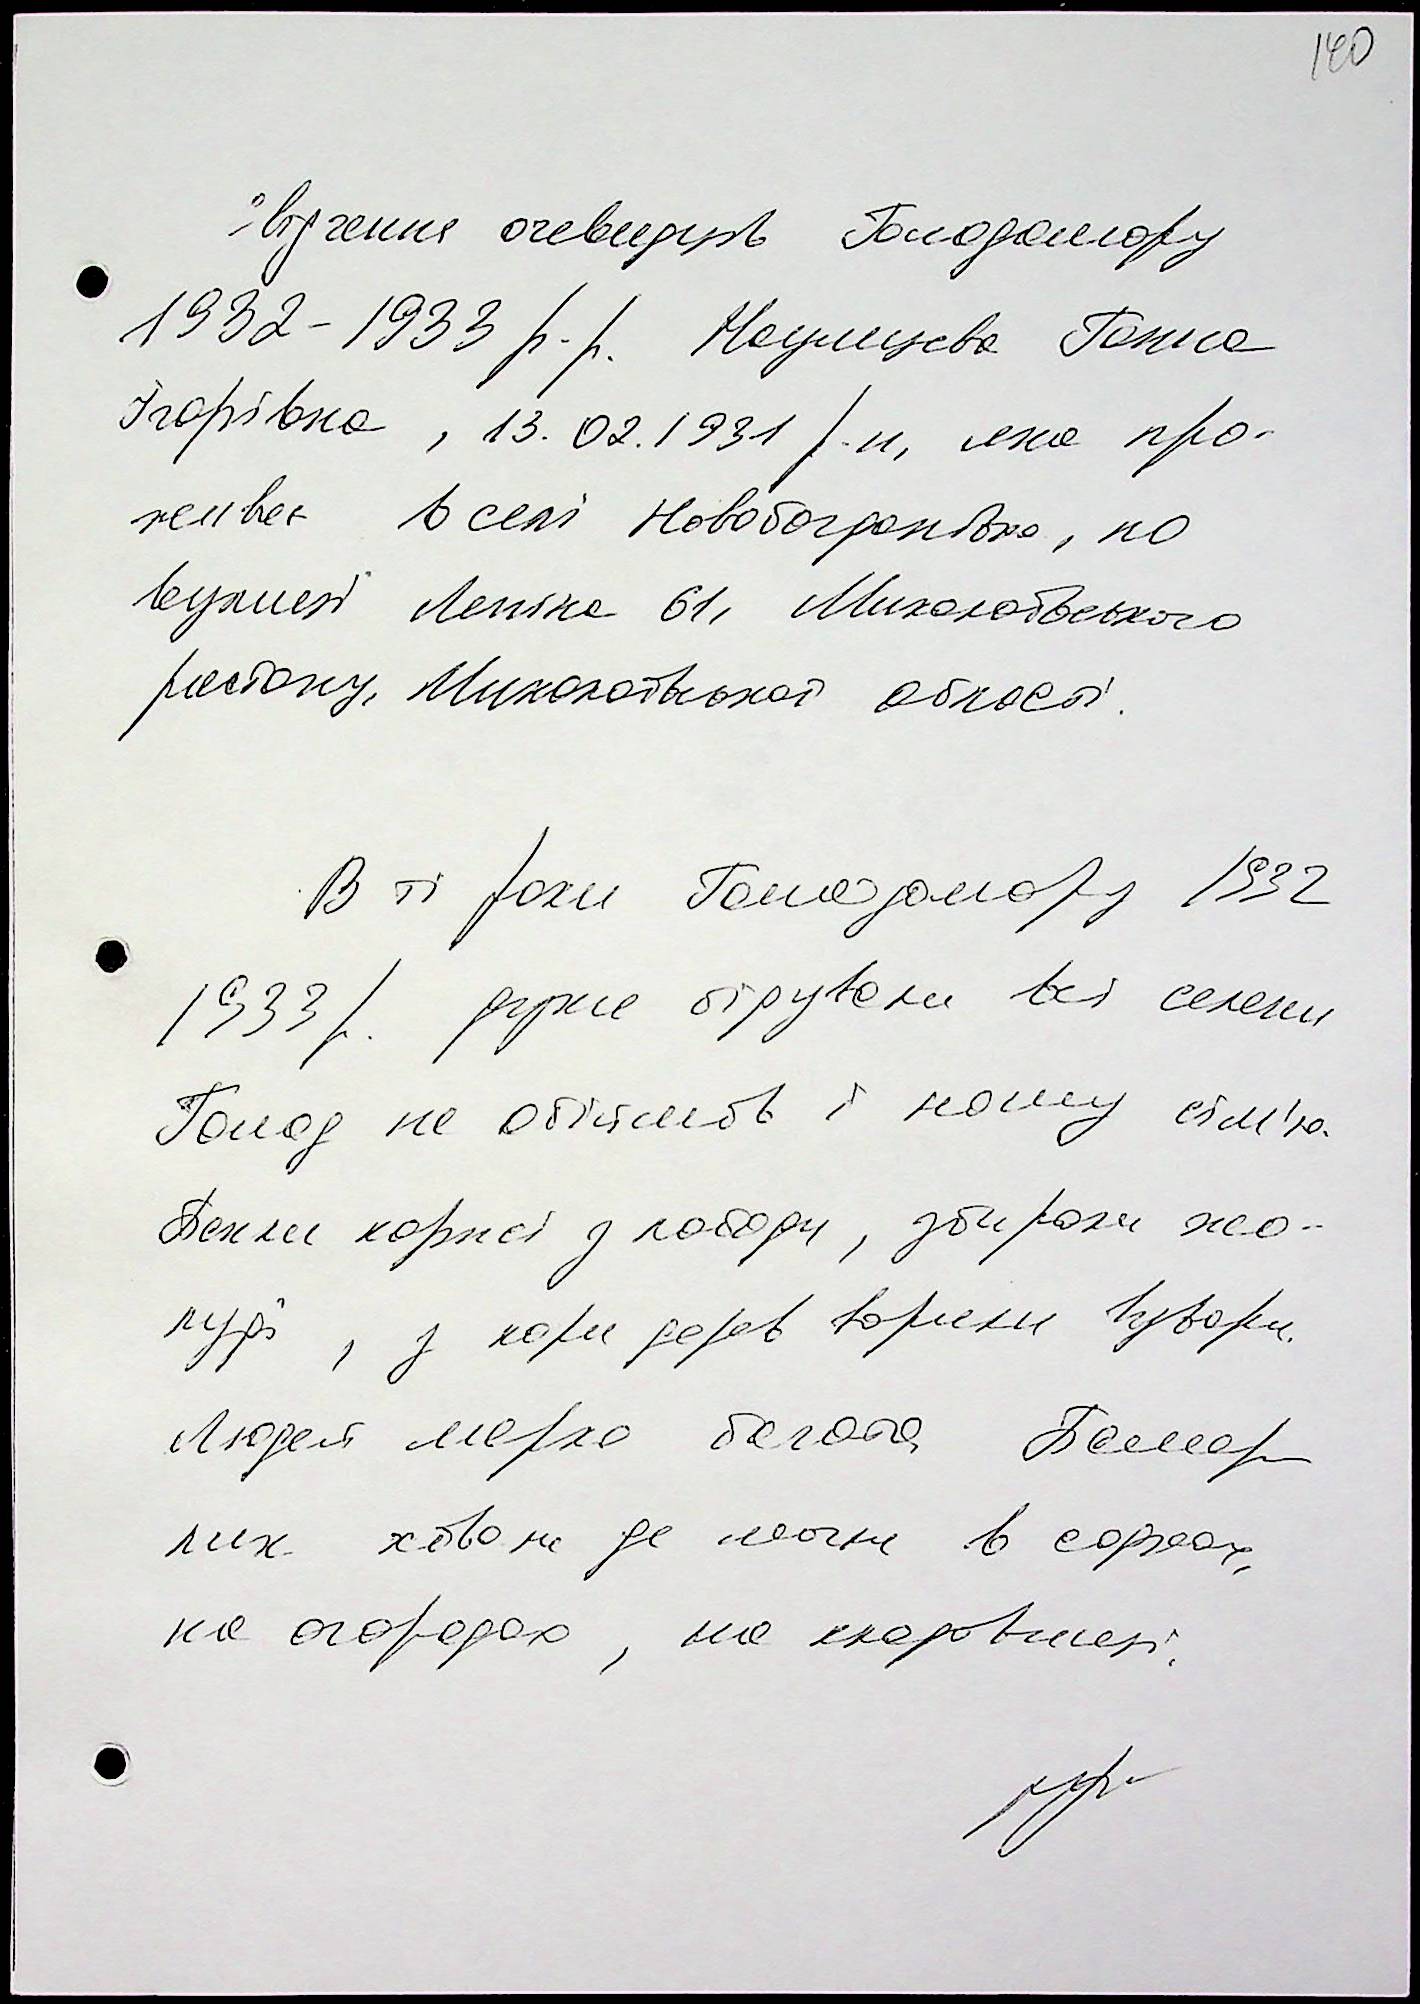 140
Свідчення очевидців Голодомору
1932-1933 р.р. Ганна
Ігорівна, 13.02.1931 р.н, яка про-
живає в селі Новобогданівка, по
вулиці Леніна 61, Миколаївського
району, Миколаївської області.
В ті роки Голодомору 1932
1933 р. дуже бідували всі селяни
Голод не обійшов і нашу сім'ю.
Пекли коржі з лободи, збирали жо-
луді, з кори дерев варили узвари.
Людей мерло багато. Помер
лих ховали де могли в садках,
на огородах, на кладовищі.